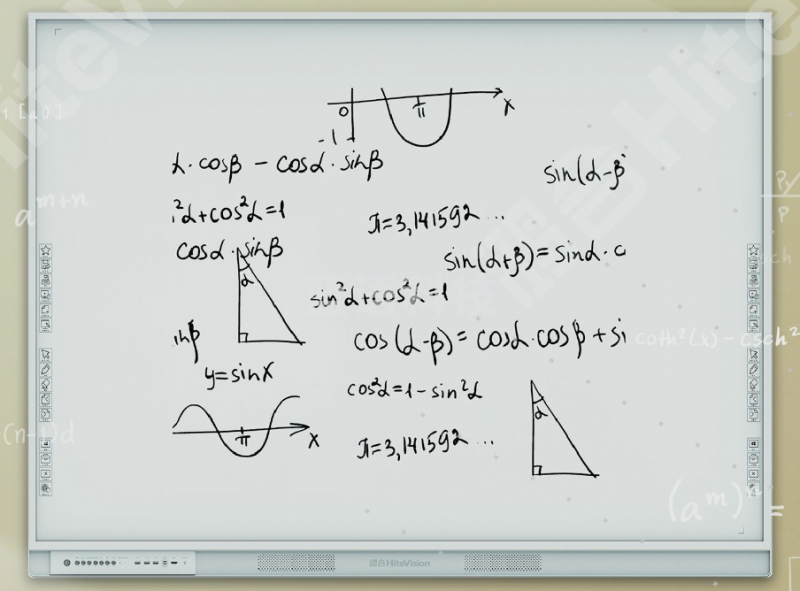 x
0
π
-1
α·cosβ – cosα·sinβ
sin(α-β
²α+cos²α=1
π=3,141592...
cosα·sinβ
sin(α+β)=sinα·c
α
sin²α+cos²α=1
inβ
cos(α-β)=cosα·cosβ+si
coth²(x) – csch²
y=sinx
cos²α=1-sin²α
α
π
x
π=3,141592...
a^m+n
(n-1)d
(a^m)^n =
P
HiteVision